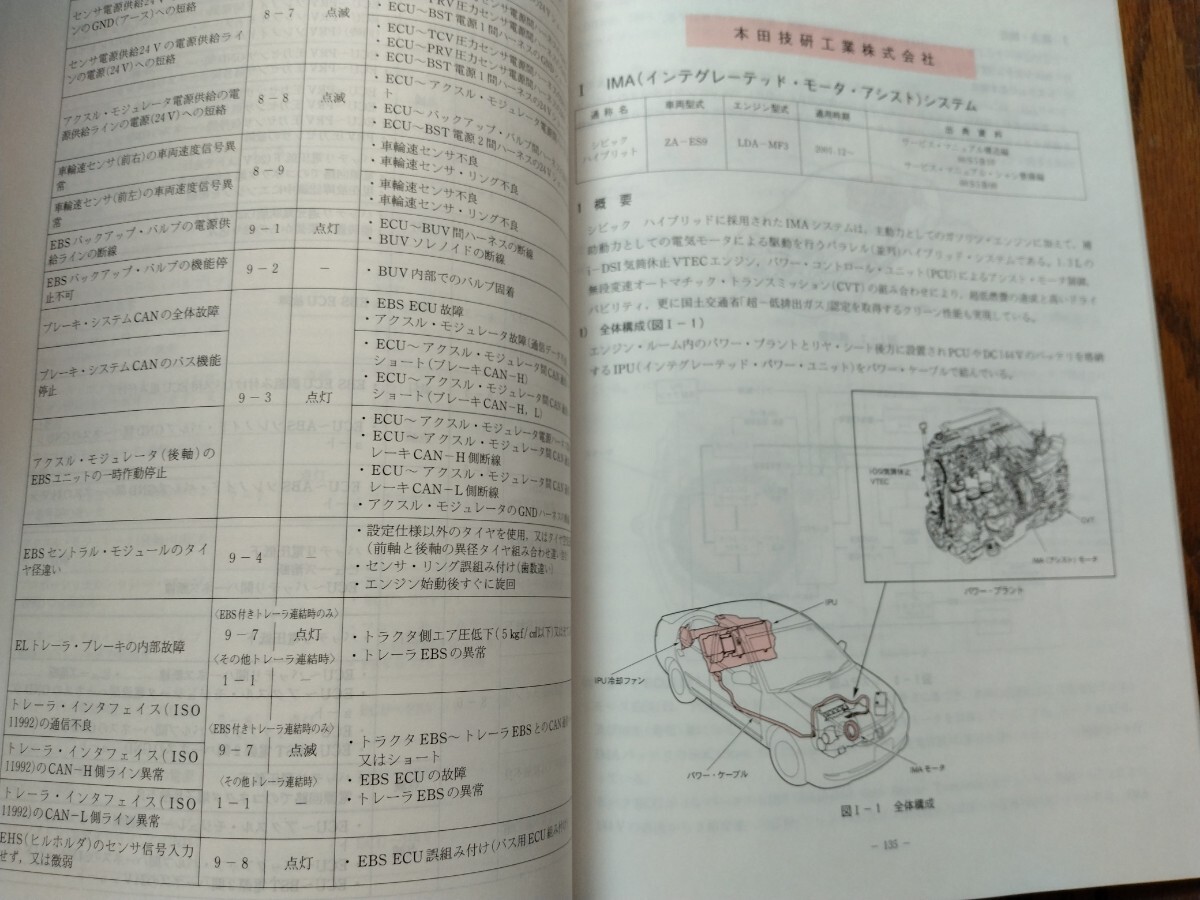 センサ電源供給24
ンのGND(アース)への短絡
8-7
点滅
・ECU〜BST電源1間ハーネスのG
センサ電源供給24Vの電源供給ライ
ンの電源(24V)への短絡
・ECU〜TCV圧力センサ電源間
・ECU〜PRV圧力センサ電源間
・ECU〜BST電源1間ハーネスの24V
アクスル・モジュレータ電源供給の電
源供給ラインの電源(24V)への短絡
8-8
点滅
・ECU〜アクスル・モジュレータ電源
ト
・ECU〜バックアップ・バルブ間ハーネスの
・ECU〜BST電源2間ハーネスの24V
車輪速センサ(前右)の車両速度信号異
常
8-9
−
・車輪速センサ不良
・車輪速センサ・リング不良
車輪速センサ(前左)の車両速度信号異
常
・車輪速センサ不良
・車輪速センサ・リング不良
EBSバックアップ・バルブの電源供
給ラインの断線
9-1
点灯
・ECU〜BUV間ハーネスの断線
・BUVソレノイドの断線
EBSバックアップ・バルブの機能停
止不可
9-2
−
・BUV内部でのバルブ固着
ブレーキ・システムCANの全体故障
・EBS ECU故障
・アクスル・モジュレータ故障(通信データ
ブレーキ・システムCANのバス機能
停止
9-3
点灯
・ECU〜アクスル・モジュレータ間CAN
ショート(ブレーキCAN-H)
・ECU〜アクスル・モジュレータ間CAN
ショート(ブレーキCAN-H, L)
アクスル・モジュレータ(後軸)の
EBSユニットの一時作動停止
・ECU〜アクスル・モジュレータ電源ハーネス
・ECU〜アクスル・モジュレータ間CAN
レーキCAN-H側断線
・ECU〜アクスル・モジュレータ間CAN
レーキCAN-L側断線
・アクスル・モジュレータのGNDハーネスの
EBSセントラル・モジュールのタイ
ヤ径違い
9-4
−
・設定仕様以外のタイヤを使用,又はタイヤ
(前軸と後軸の異径タイヤ組み合わせ違い
・センサ・リング誤組み付け(歯数違い)
・エンジン始動後すぐに旋回
ELトレーラ・ブレーキの内部故障
〈EBS付きトレーラ連結時のみ〉
9-7
点灯
〈その他トレーラ連結時〉
1-1
−
・トラクタ側エア圧低下(5kgf/㎠以下)又は
・トレーラEBSの異常
トレーラ・インタフェイス(ISO
11992)の通信不良
トレーラ・インタフェイス(ISO
11992)のCAN-H側ライン異常
トレーラ・インタフェイス(ISO
11992)のCAN-L側ライン異常
〈EBS付きトレーラ連結時のみ〉
9-7
点滅
〈その他トレーラ連結時〉
1-1
−
・トラクタEBS〜トレーラEBSとのCAN
又はショート
・EBS ECUの故障
・トレーラEBSの異常
EHS(ヒルホルダ)のセンサ信号入力
せず,又は微弱
9-8
点灯
・EBS ECU誤組み付け(バス用ECU組み付け
本田技研工業株式会社
I IMA(インテグレーテッド・モータ・アシスト)システム
通称名 車両型式 エンジン型式 適用時期 出典資料
シビック
ハイブリット
ZA-ES9
LDA-MF3
2001.12〜
サービス・マニュアル構造編
サービス・マニュアル・シャシ整備編
1 概要
シビック ハイブリッドに採用されたIMAシステムは,主動力としてのガソリン・エンジンに加えて,補
助動力としての電気モータによる駆動を行うパラレル(並列)ハイブリッド・システムである。1.3Lの
i-DSI気筒休止VTECエンジン,パワー・コントロール・ユニット(PCU)によるアシスト・モータ制御,
無段変速オートマチック・トランスミッション(CVT)の組み合わせにより,超低燃費の達成と高いドライ
バビリティ,更に国土交通省「超−低排出ガス」認定を取得するクリーン性能も実現している。
1) 全体構成(図I-1)
エンジン・ルーム内のパワー・プラントとリヤ・シート後方に設置されPCUやDC144Vのバッテリを格納
するIPU(インテグレーテッド・パワー・ユニット)をパワー・ケーブルで結んでいる。
VTEC
CVT
IMA(アシスト)モータ
パワー・プラント
IPU
IPU冷却ファン
パワー・ケーブル
IMAモータ
図I-1 全体構成
− 135 −